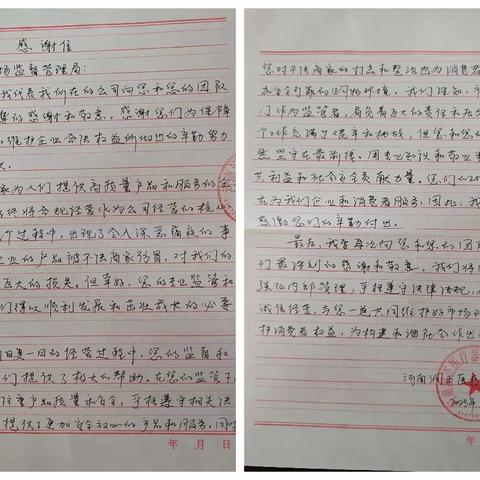 感谢信
场监督管理局:
我代表我们所在的公司向您和您的团队
的感谢和敬意,感谢您们为保障
维护企业合法权益所做出的辛勤努力
为人们提供高质量产品和服务的企
始终将合规经营作为公司经营的核心
个过程中,出现了令人深恶痛疾的事
业的产品被不法商家仿冒,对我们的
巨大的损失。但幸好,您的专业监管和
们得以顺利发展和茁壮成长的必要
日复一日的经营过程中,您的监督和
们提供了极大的帮助。在您的监管下,
注重产品质量和安全,严格遵守相关法
提供了更加安全放心的产品和服务。同
年 月 日
您对不法商家的打击和整治也为消费者
和安全可靠的 环境。我们深知,
门作为监管者,肩负着巨大的责任和
个工作充满了艰辛和挑战,但您和您
然坚守在最前线,用专业知识和敬业
艺利益和社会安全贡献力量。您们的
在为我们企业和消费者服务,因此,我
感激您们的辛勤付出。
最后,我要再次向您和您的团
们最深刻的感谢和敬意。我们将
强化内部管理,严格遵守法律法规,
诚信经营,与您一道共同维护好市场
护消费者权益,为构建和谐社会作出
河南润
2023年
年